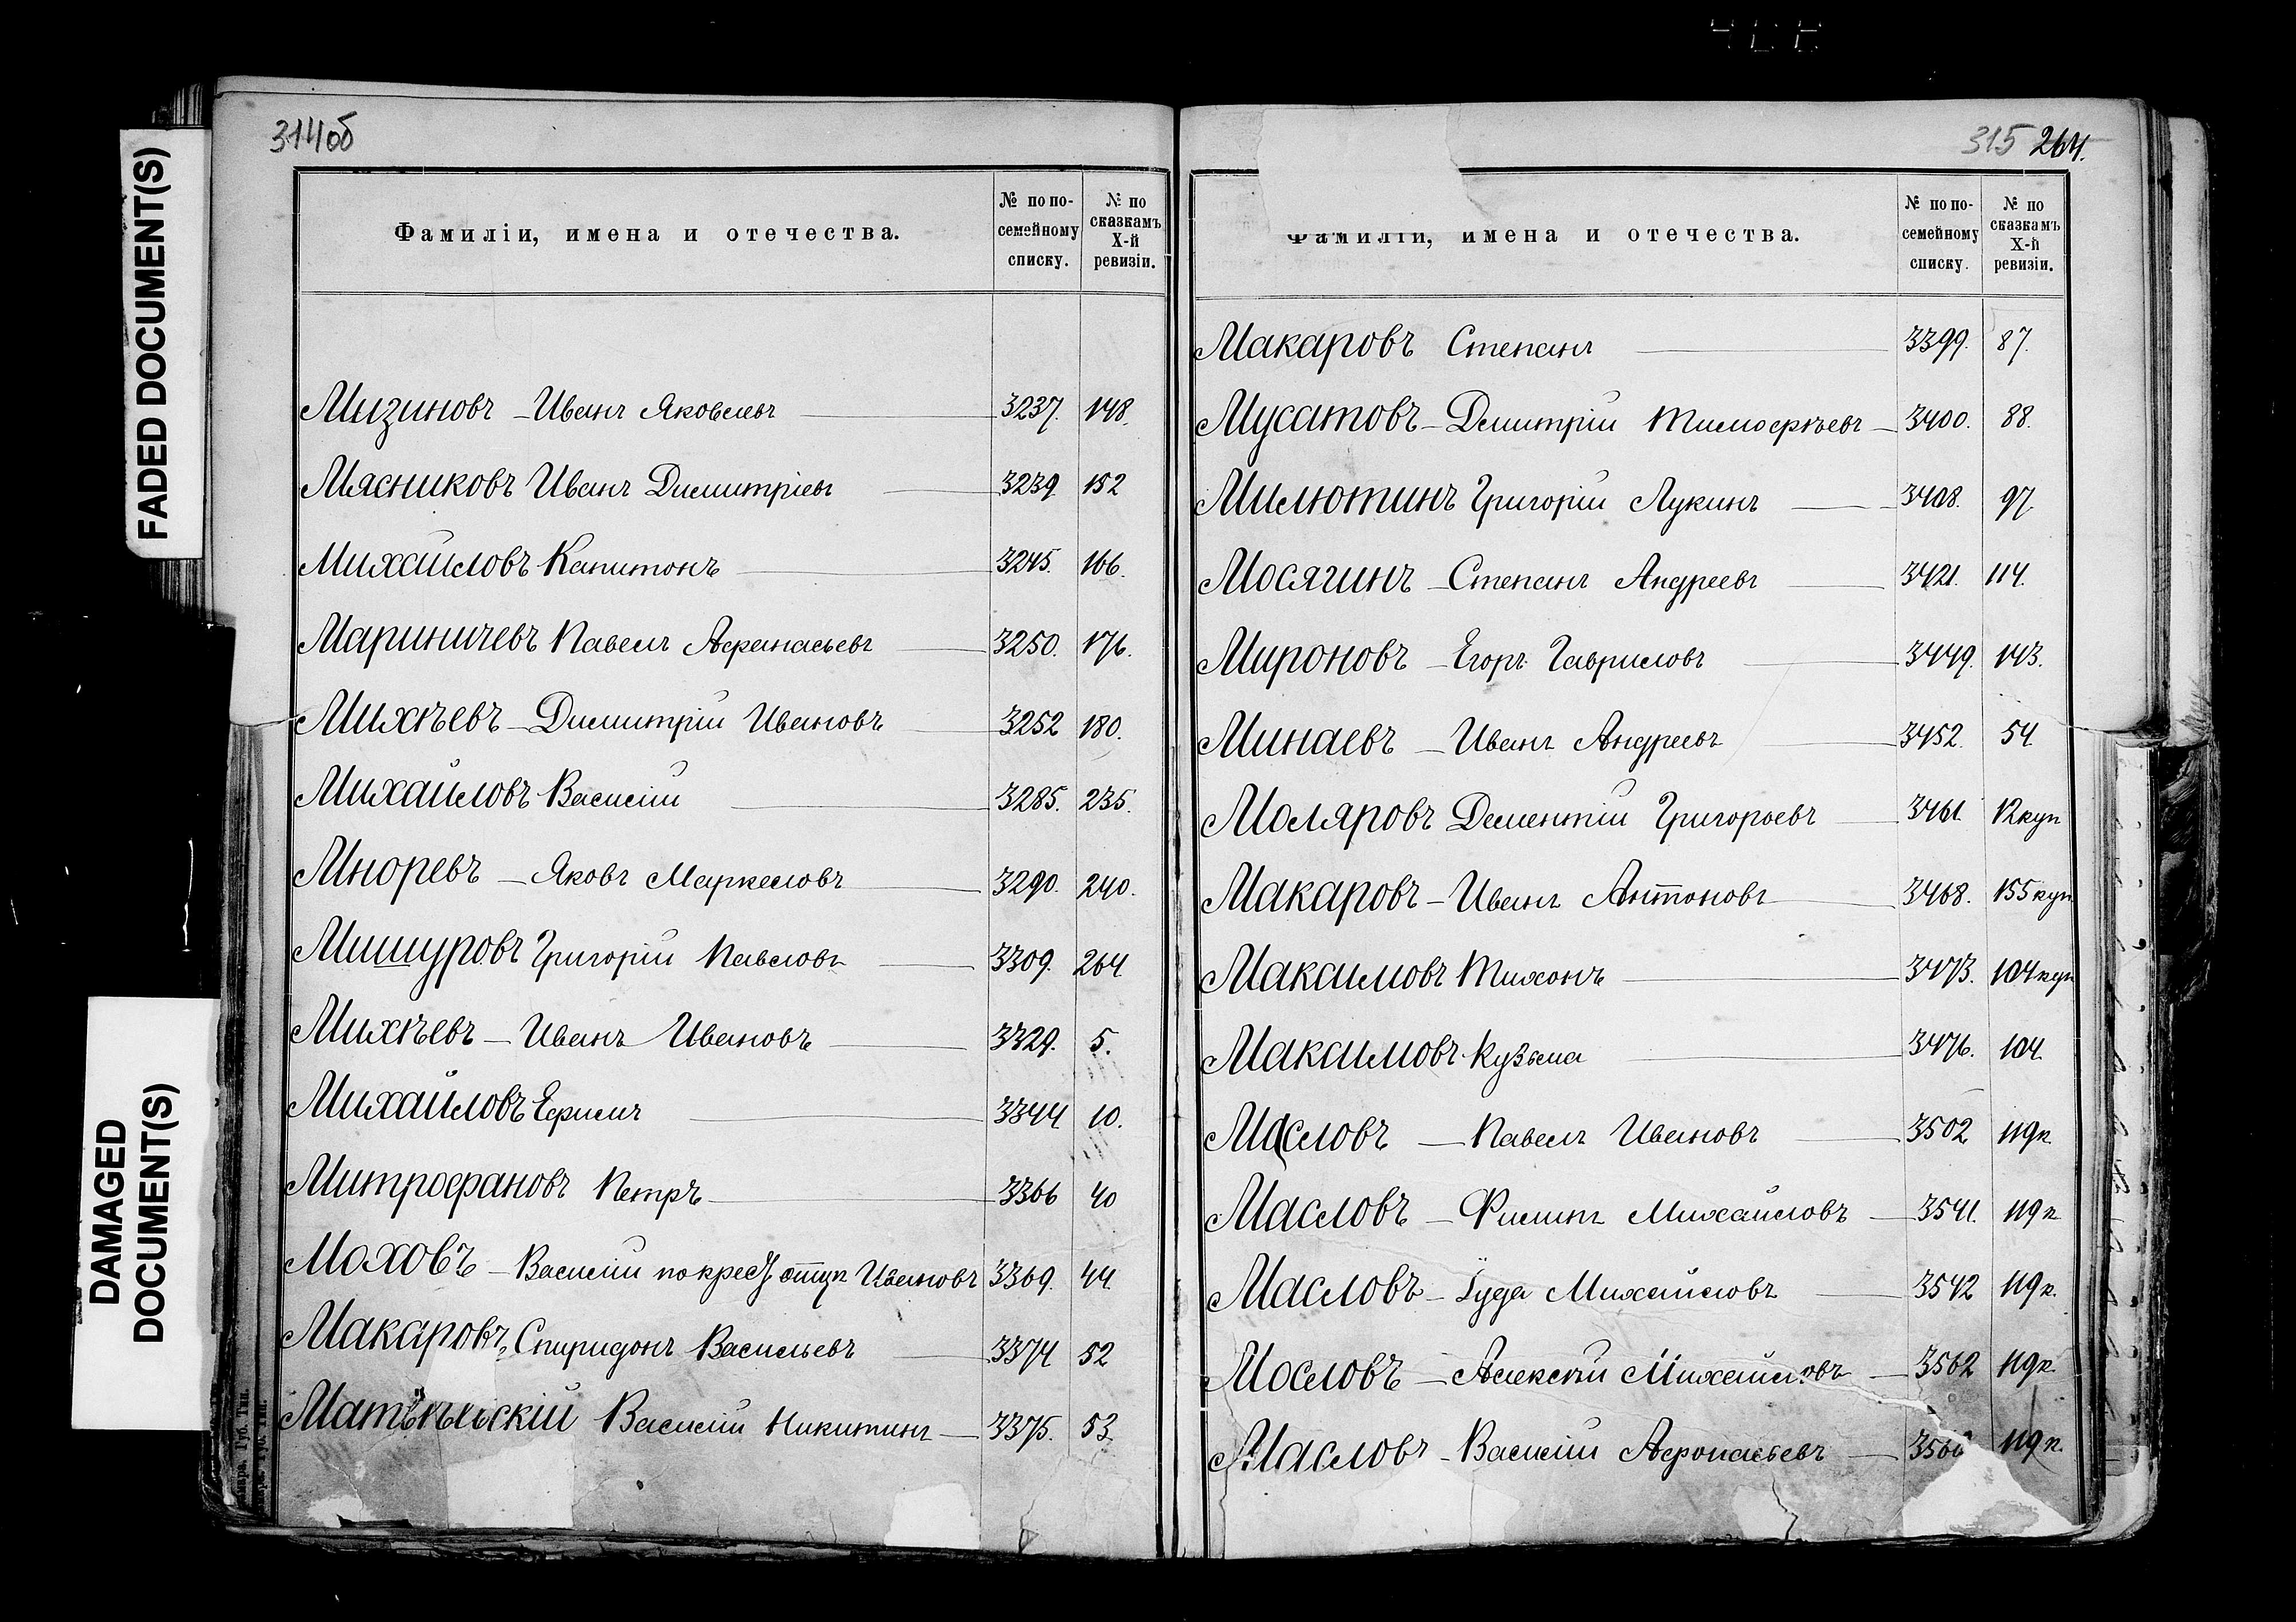 314об
Фамиліи, имена и отечества.
№ по по-
семейному
списку.
№ по
сказкамъ
X-й
ревизіи.
Мизиновъ – Иванъ Яковлевъ 3237. 148.
Мясниковъ Иванъ Димитріевъ 3239. 152
Михайловъ Капитонъ 3245. 166.
Мариничевъ Павелъ Афанасьевъ 3250. 176.
Михѣевъ – Димитрій Ивановъ 3252 180.
Михайловъ Василій 3285. 235.
Мноревъ – Яковъ Маркеловъ 3290. 240.
Мишуровъ Григорій Павловъ 3309. 264
Михѣевъ – Иванъ Ивановъ 3329. 5.
Михайловъ Ефимъ 3344 10.
Митрофановъ Петръ 3366 40
Моховъ – Василій по крест отцу Ивановъ 3369. 44.
Макаровъ, Спиридонъ Васильевъ 3374 52
Василій Никитинъ – 3375. 53.
315 264.
Фамиліи, имена и отечества.
№ по по-
семейному
списку.
№ по
сказкамъ
X-й
ревизіи.
Макаровъ Степанъ 3399. 87.
Мусатовъ – Демитрій Тимофѣевъ – 3400. 88.
Милютинъ Григорій Лукинъ 3408. 97.
Мосягинъ – Степанъ Андреевъ 3421. 114.
Мироновъ – Егоръ Гавриловъ 3449. 143.
Минаевъ – Иванъ Андреевъ 3452. 54
Моляровъ Дементій Григорьевъ 3461. 12 куп
Макаровъ – Иванъ Антоновъ 3468. 155 куп
Максимовъ Тихонъ 3473. 104 куп
Максимовъ Кузьма 3476. 104.
Масловъ – Павелъ Ивановъ 3502 119 к.
Масловъ – Филипъ Михайловъ 3541. 119 к
Масловъ – Іуда Михайловъ 3542 119 к.
Мословъ – Алексѣй Михайловъ 3562 119 к.
Масловъ – Василій Афонасьевъ 119 к.
FADED DOCUMENT(S)
DAMAGED
DOCUMENT(S)